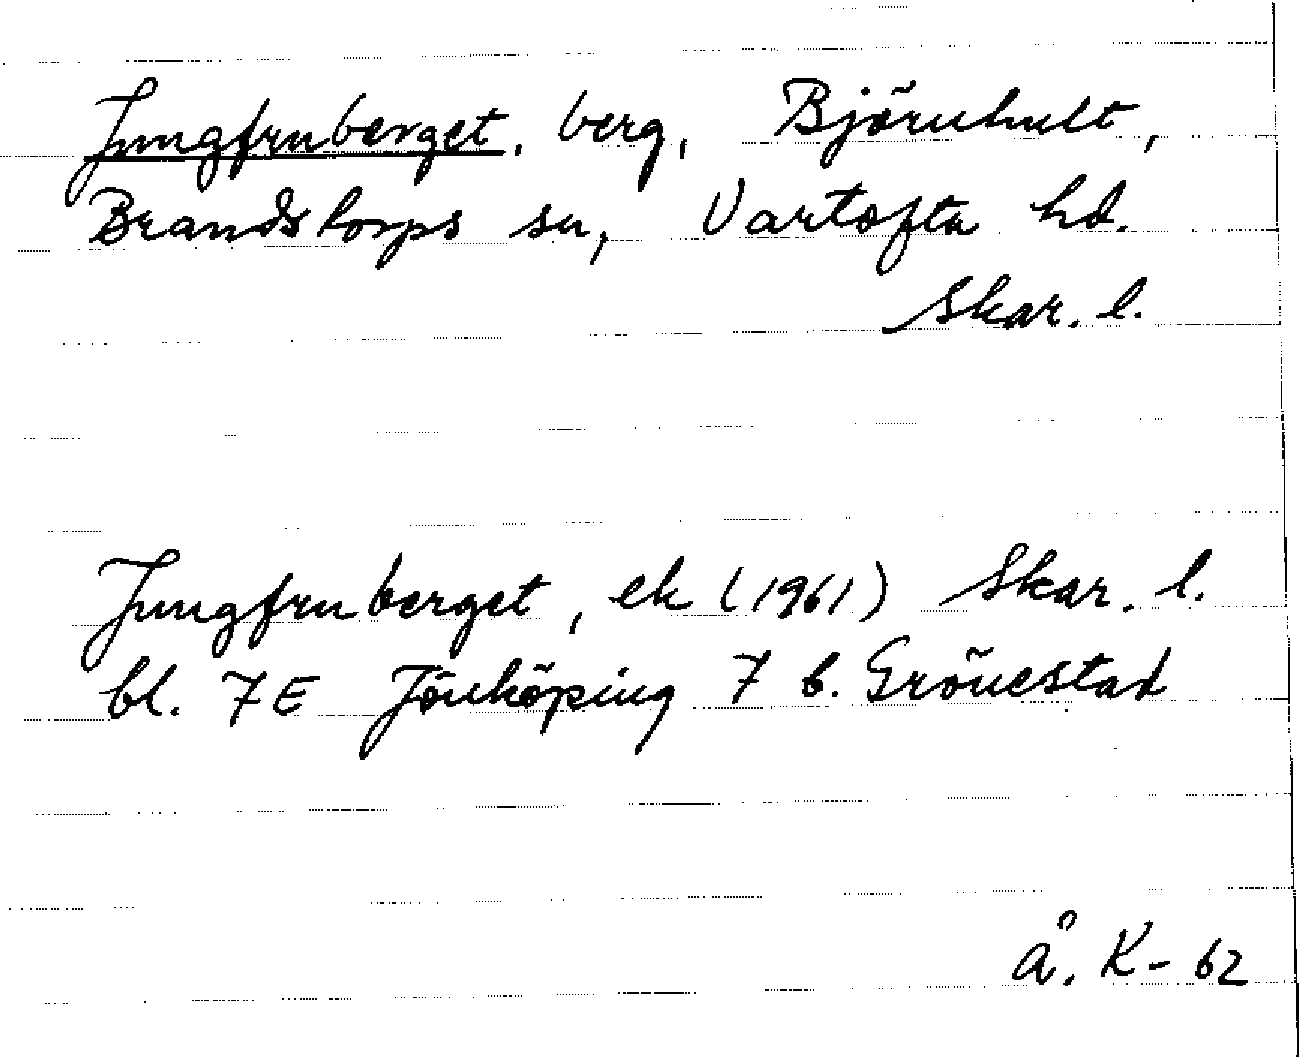 Jungfruberget, berg, Björnhult,
Brandstorps sn, Vartofta hd.
Skar. l.
Jungfruberget, ek (1961) Skar. l.
bl. 7E Jönköping 7 b. Grönestad
å. K - 62